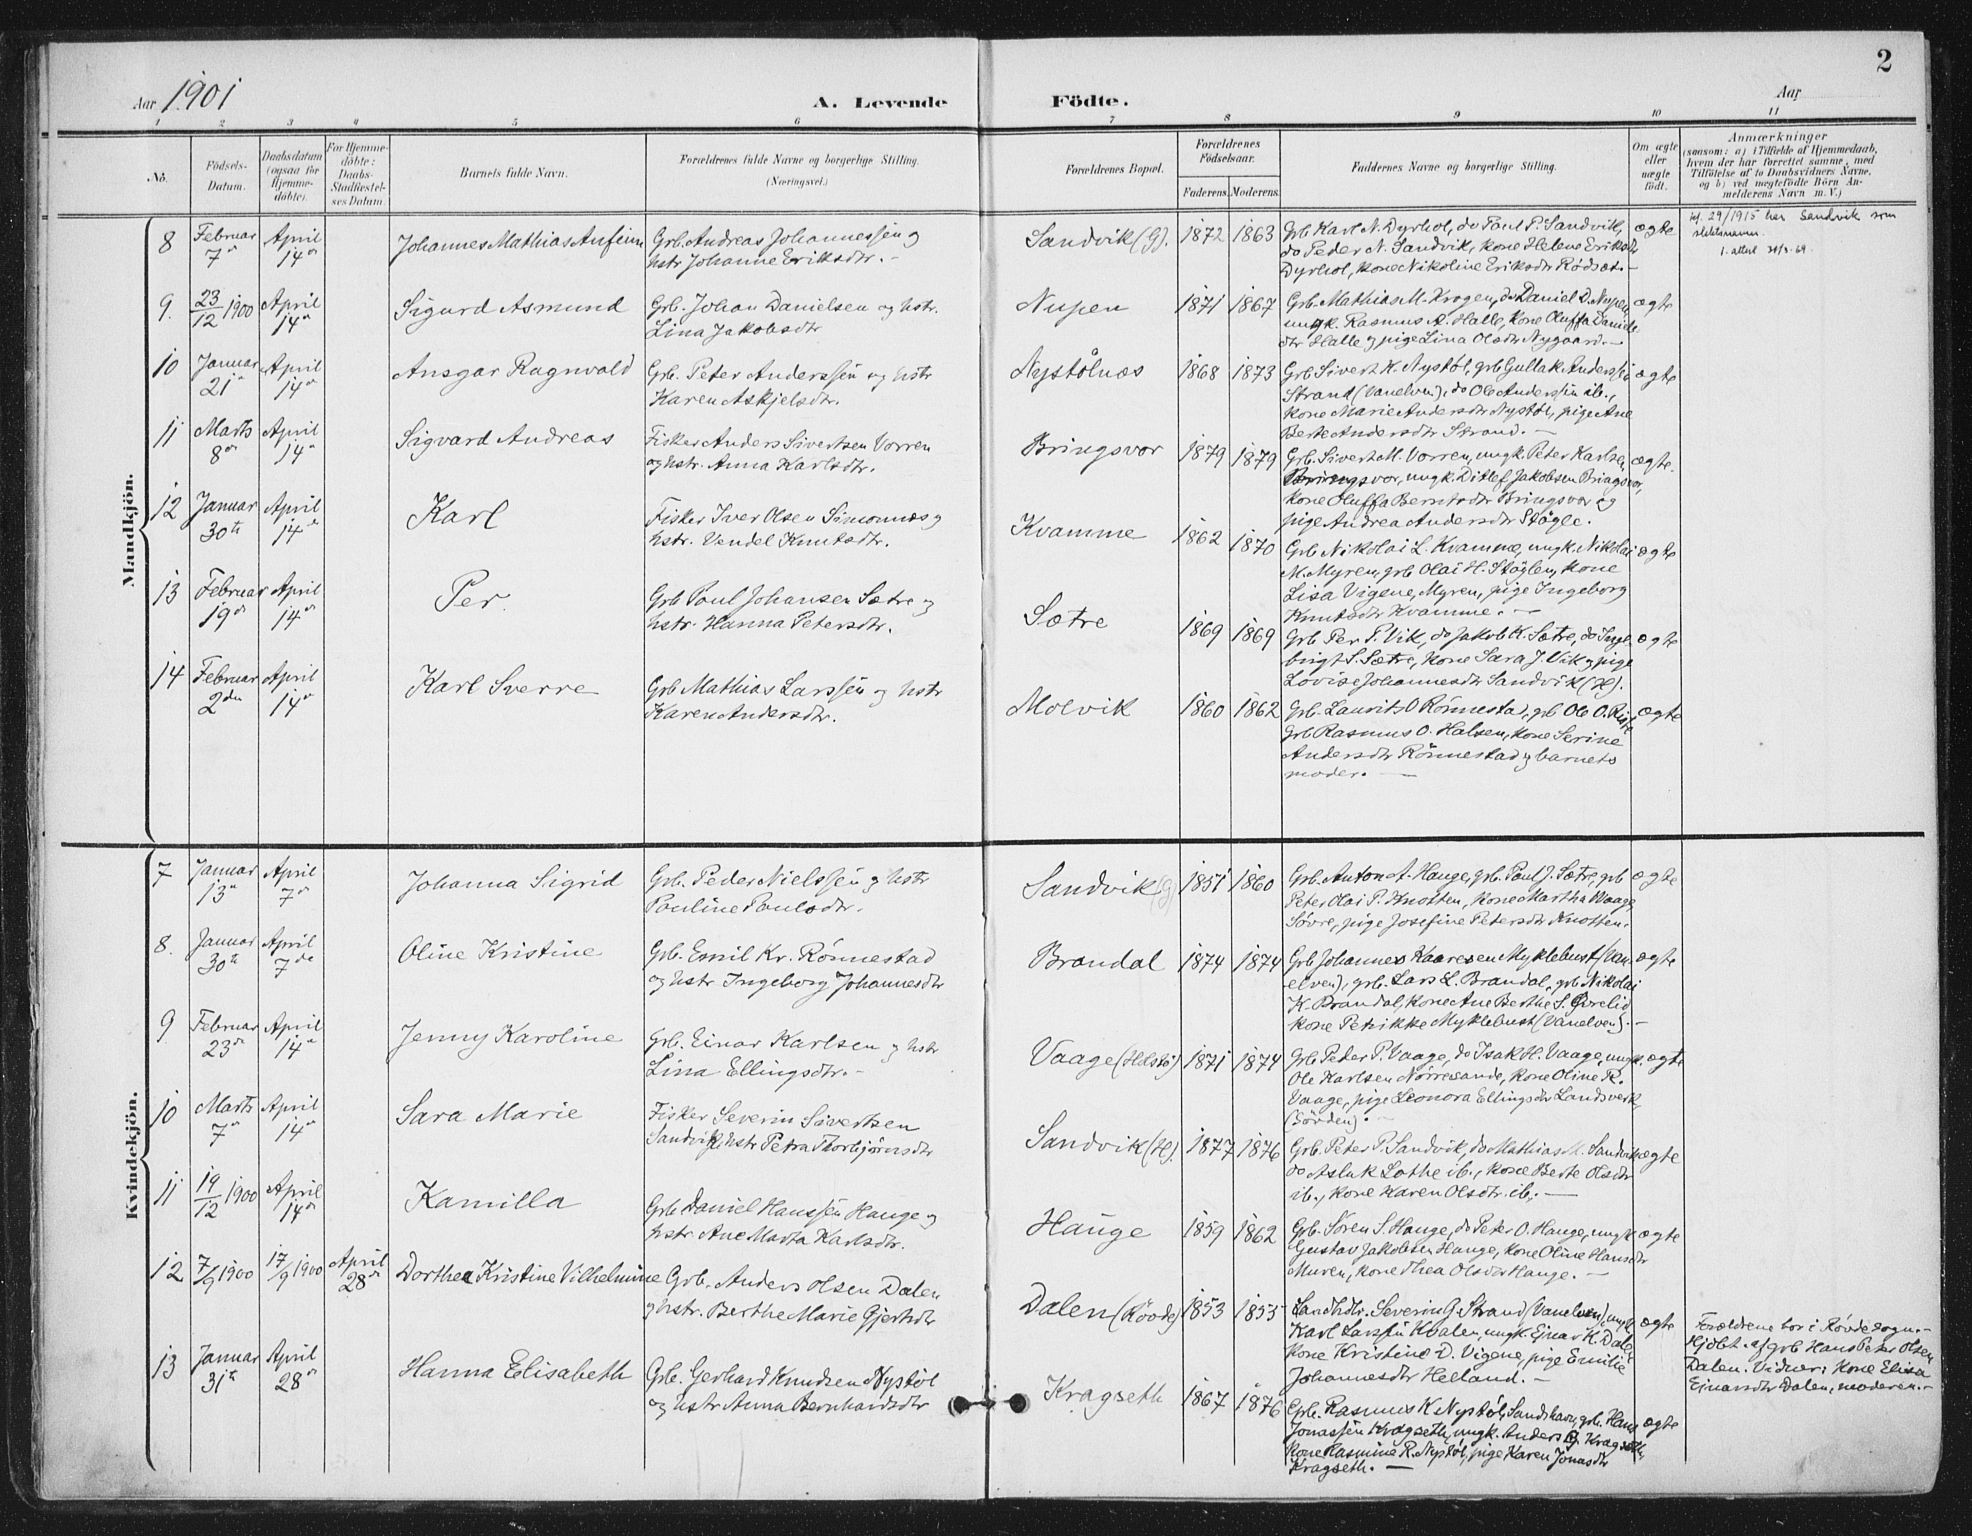 2
Aar 1901
A. Levende
Födte.
Aar
1 2 3 4 5 6 7 8 9 10 11
No.
Födsels-
Datum.
Daabsdatum
(ogsaa for
Hjemme-
döbte).
For Hjemme-
döbte:
Daabs-
Stadfæstel-
ses Datum.
Barnets fulde Navn.
Forældrenes fulde Navne og borgerlige Stilling.
(Næringsvei.)
Forældrenes Bopæl.
Forældrenes
Födselsaar.
Faderens. Moderens.
Faddernes Navne og borgerlige Stilling.
Om ægte
eller
uægte
födt.
Anmærkninger
(saasom: a) i Tilfælde af Hjemmedaab,
hvem der har forrettet samme, med
Tilföielse af to Daabsvidners Navne,
og b) ved uægtefödte Börn An-
melderens Navn m. V.)
Mandkjön.
8 Februar April Johannes Mathias Anfinn Grb. Andreas Johannessen og
7de 14de hstr Johanne Eriksdtr. -
Sandvik (G). 1872 1863 Grb Karl N. Dyrhol, do Paul P. Sandvik, ægte
do Peder N. Sandvik, kone Helene Eriksdtr
Dyrhol, kone Nikoline Eriksdtr Rødsæt. -
kf. 29/1915 har Sandvik som
slektsnavn.
9. 23/12 1900 April 14de Sigurd Asmund Grb. Johan Danielsen og hstr.
Lina Jakobsdtr
Nupen 1871 1867 Grb. Mathias M. Krogen, do Daniel D. Nupen, ægte
ungk. Rasmus A. Halle, kone Oluffa Daniels
dtr Halle og pige Lina Olsdtr Nygaard. -
10 Januar April Ansgar Ragnvald Grb. Peter Anderssen og hstr
21de 14de Karen Askjelsdtr.
Nystölnæs 1868 1873 Grb Sivert K. Nystöl, grb Gullak Anderssen ægte
Strand (Vanelven), do Ole Anderssen ib.,
kone Marie Andersdtr Nystöl, pige Ane
Berte Andersdtr Strand. -
11 Marts April Sigvard Andreas Fisker Anders Sivertsen Vorren
8de 14de og hstr. Anna Karlsdtr.
Bringsvor 1879 1879 Grb. Sivert M. Vorren, ungk Peter Karlsen ægte.
Bringsvor, ungk. Ditlef Jakobsen Bringsvor,
kone Oluffa Berntsdtr Bringsvor og
pige Andrea Andersdtr Stögle.
12 Januar April Karl Fisker Iver Olsen Simonnæs og
30te 14de hstr. Vendel Knutsdtr.
Kvamme 1862 1870 Grb Nikolai L. Kvamme, ungk. Nikolai ægte
M. Myren, grb Olai H. Stöglen, kone
Lisa Vigene, Myren, pige Ingeborg
Knutsdtr Kvamme. -
13 Februar April Per. Grb Paul Johansen Sætre og
19de 14de hstr. Hanna Petersdtr.
Sætre 1869 1869 Grb Per P. Vik, do Jakob K. Sætre, do Inge- ægte
brigt S. Sætre, kone Sara J. Vik og pige
Lovise Johannesdtr Sandvik (H).
14 Februar April Karl Sverre Grb Mathias Larssen og hstr
2den 14de Karen Andersdtr.
Molvik 1860 1862 Grb. Laurits O Rönnestad, grb Ole O. ægte
grb Rasmus O. Halsen, kone Serine
Andersdtr Rönnestad og barnets
moder. -
Kvindekjön.
7 Januar April Johanna Sigrid Grb. Peder Nielssen og hstr
13de 7de Pauline Paulsdtr.
Sandvik (G) 1851 1860 Grb. Anton A. Hauge, grb. Paul J. Sætre, grb ægte
Peter Olai P. Knotten, kone Martha Waage,
Sørre, pige Josefine Petersdtr Knotten.
8. Januar April Oline Kristine Grb. Emil Kr. Rönnestad
30te 7de og hstr Ingeborg Johannesdtr
Brandal 1874 1874 Grb Johannes Kaaresen Myklebust (Van- ægte
elven), grb. Lars L. Brandal, grb Nikolai
K. Brandal, kone Ane Berthe S.
kone Petrikke Myklebust (Vanelven). -
9 Februar April Jenny Karoline Grb. Einar Karlsen og hstr
23de 14de Lina Ellingsdtr. -
Vaage 1871 1874 Grb Peter P. Vaage, do Isak H. Vaage, ungk. ægte
Ole Karlsen Nörresande, kone Oline R.
Vaage, pige Leonora Ellingsdtr Landsverk,
(Sörden). -
10 Marts April Sara Marie Fisker Severin Sivertsen
7de 14de Sandvik og hstr Petra Thorbjörnsdtr
Sandvik (H). 1877 1876 Grb. Peter P. Sandvik, do Mathias M. Sandvik ægte
do Aslak Lothe ib., kone Berte Olsdtr
ib., kone Karen Olsdtr. ib. -
11 19/12 1900 April 14de Kamilla Grb Daniel Hanssen Hauge og
hstr Ane Marta Karlsdtr.
Hauge 1859 1862 Grb. Sören S. Hauge, do Peter O. Hauge, ungk ægte
Gustav Jakobsen Hauge, kone Oline Hansdtr
Muren, kone Thea Olsdtr Hauge. -
12 7/9 1900 17/9 1900 April 28de Dorthea Kristine Vilhelmine Grb. Anders Olsen Dalen
og hstr. Berthe Marie Gjertsdtr
Dalen (Rövde) 1853 1855 Landhdlr. Severin G. Strand (Vanelven), ungk ægte
Karl Larssen Kvalen, ungk. Ejnar K. Dalen
kone Kristine D. Vigene, pige Emilie
Johannesdtr Heeland. -
Forældrene bor i Rövde sogn. -
Hjdbt. af grb Hans Peter Olsen
Dalen. Vidner: kone Elisa
Ejnarsdtr Dalen, moderen. -
13 Januar April Hanna Elisabeth Grb. Gerhard Knudsen Nystöl
31te 28de og hstr Anna Bernhardsdtr
Kragseth 1867 1876 Grb. Rasmus K Nystöl, Sandshavn, grb. Hans ægte
Jonassen Kragseth, ungk. Anders G. Kragseth,
kone Rasmine R. Nystöl, pige Karen Jonasdtr
Kragseth. -